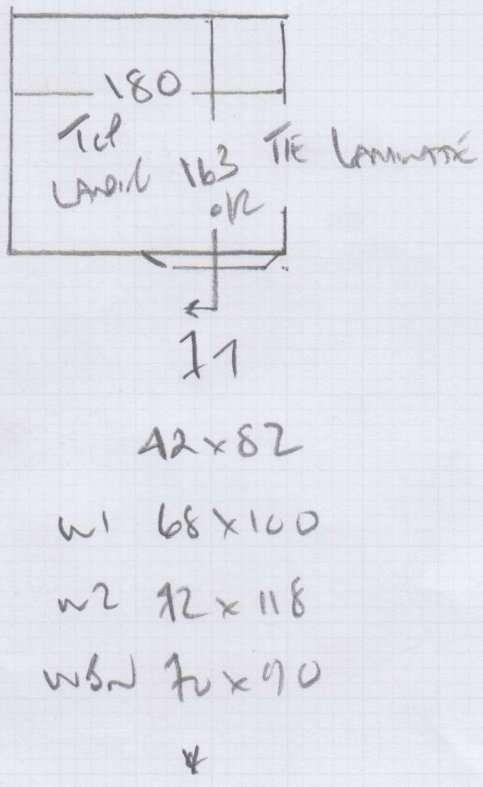 180
Top
Landing 163 TIE LAMINATE
OR
11
42 x 82
W1 68 x 100
W2 72 x 118
70 x 90
*